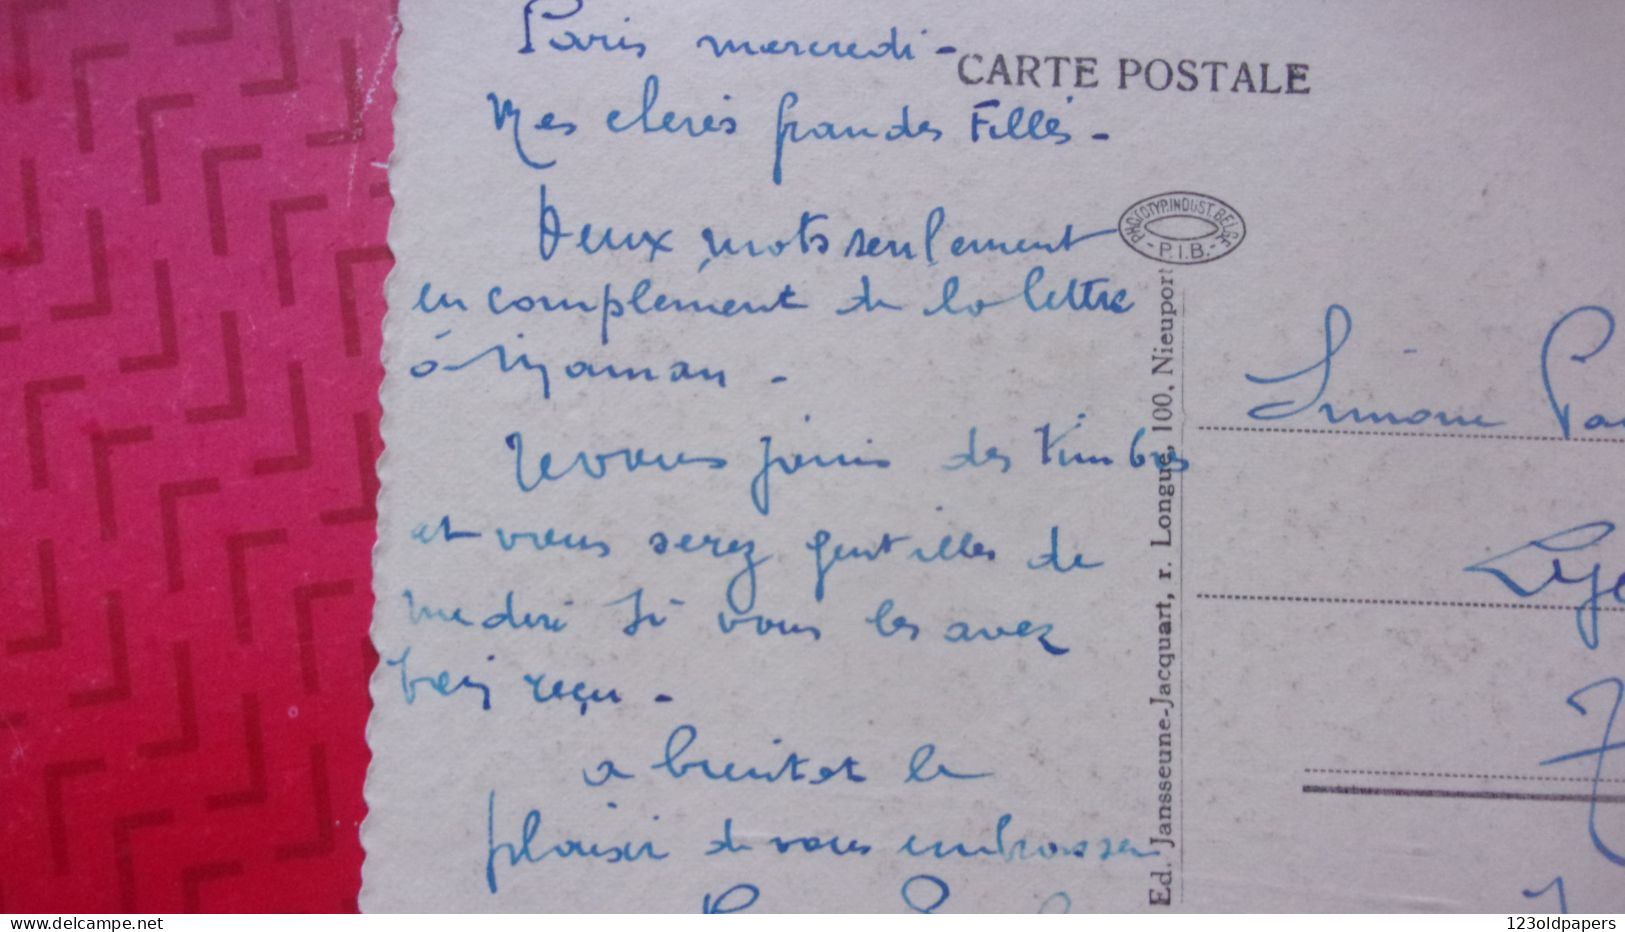 Paris mercredi -
CARTE POSTALE
Mes cheres grandes Filles -
Deux mots seulement
en complement de la lettre
à Maman -
Je vous joins des timbres
et vous serez gentilles de
me dire si vous les avez
bien reçu -
a bientot le
plaisir de vous embrasser
PHOTOTYP. INDUST. BELGE
- P.I.B. -
Ed. Jansseune-Jacquart, r. Longue, 100, Nieuport
Simone
123oldpapers